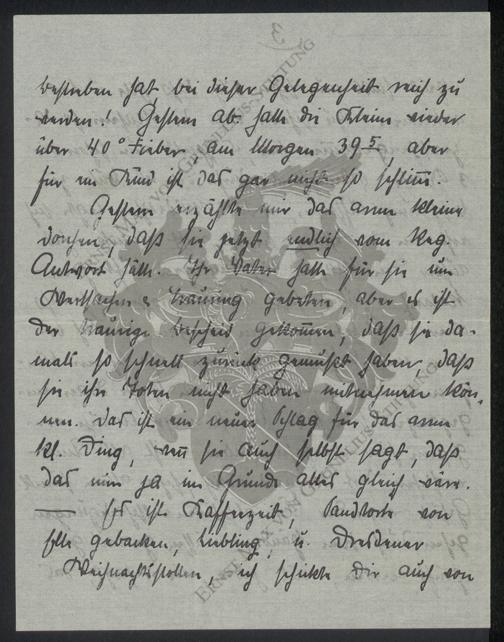 3
bestreben hat bei dieser Gelegenheit reich zu
werden! Gestern ab. hatte die Kleine wieder
über 40° Fieber, am Morgen 39⁵, aber
für ein Kind ist das gar nicht so schlimm.
Gestern erzählte mir das arme kleine
dorchen, daß sie jetzt endlich vom Reg.
Antwort hätte. Ihr Vater hatte für sie um
Wertsachen & Trauring gebeten, aber es ist
der traurige Bescheid gekommen, daß sie da-
mals so schnell zurück gemußt haben, daß
sie ihre Toten nicht haben mitnehmen kön-
nen. Das ist ein neuer Schlag für das arme
kl. Ding, wenn sie auch selbst sagt, daß
das nun ja im Grunde alles gleich wäre.
— Es ist Kaffeezeit, Sandtorte von
selbst gebacken, Liebling, u. Dresdener
Weihnachtsstollen, ich schickte Dir auch von